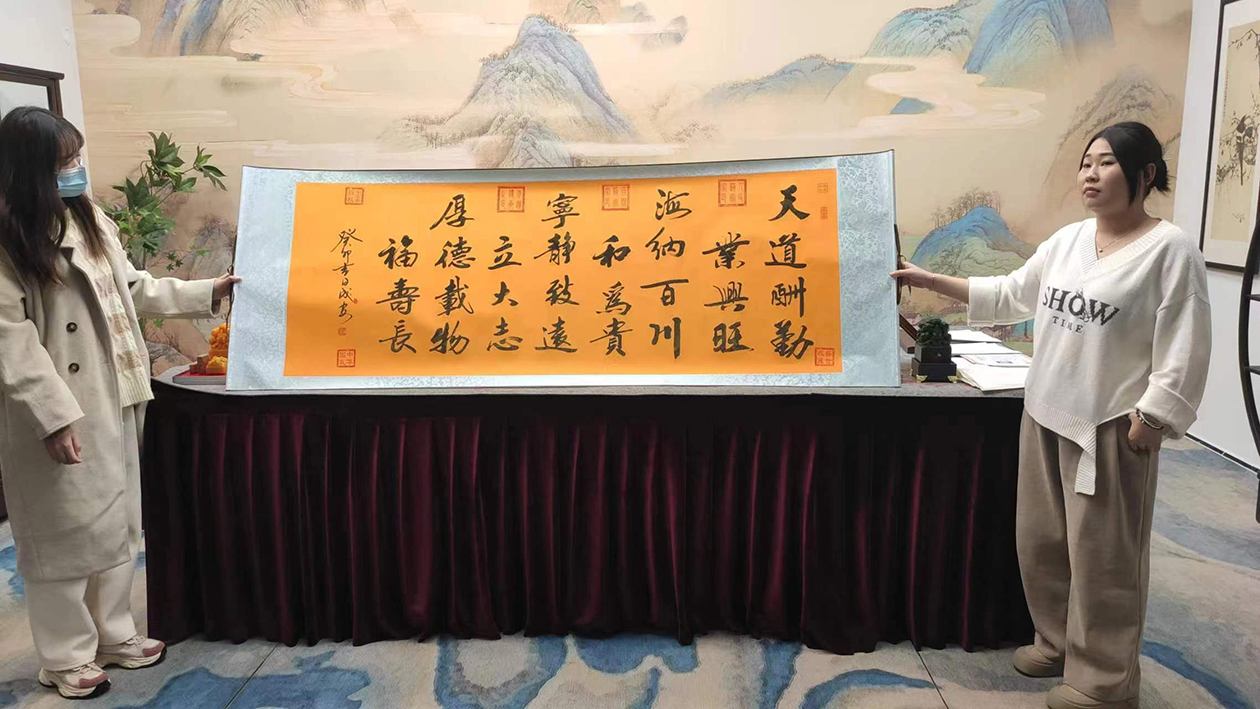 天道酬勤
業興旺
海納百川
和爲貴
寧静致遠
立大志
厚德載物
福壽長
癸卯
SHOW
TIME